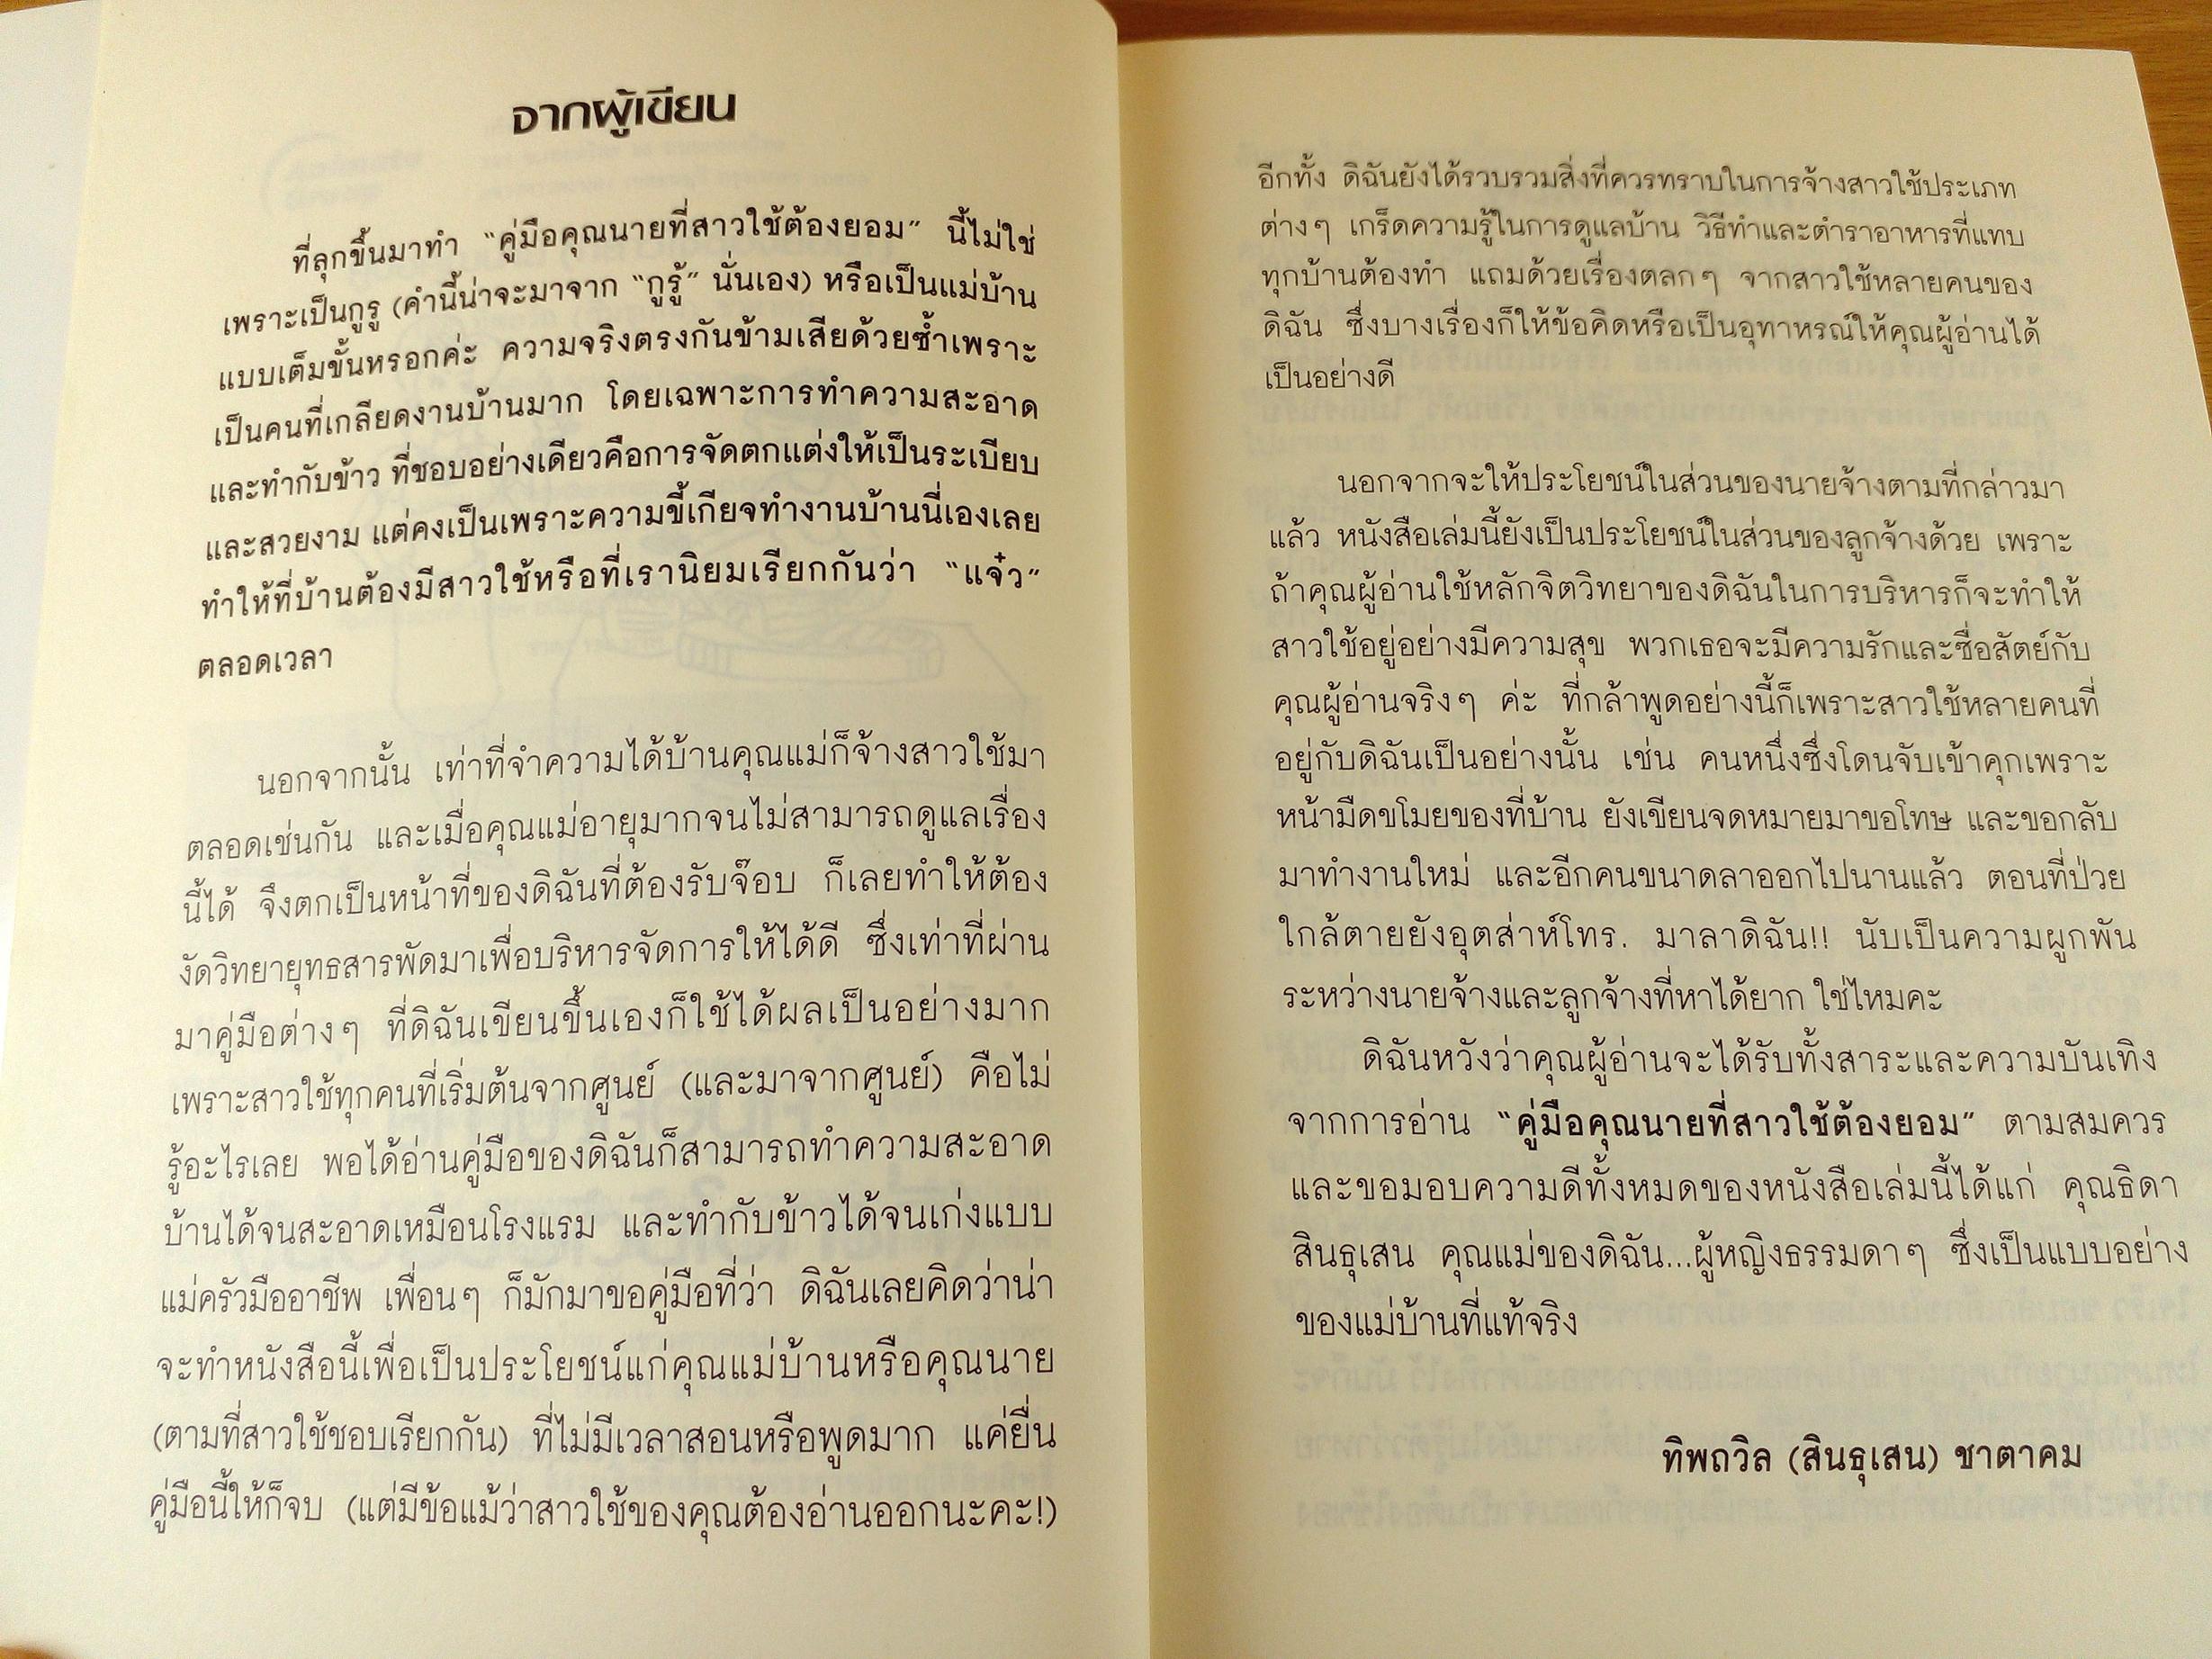 จากผู้เขียน
ที่ลุกขึ้นมาทำ “คู่มือคุณนายที่สาวใช้ต้องยอม” นี้ไม่ใช่
เพราะเป็นกูรู (คำนี้น่าจะมาจาก “กูรู้” นั่นเอง) หรือเป็นแม่บ้าน
แบบเต็มขั้นหรอกค่ะ ความจริงตรงกันข้ามเสียด้วยซ้ำเพราะ
เป็นคนที่เกลียดงานบ้านมาก โดยเฉพาะการทำความสะอาด
และทำกับข้าว ที่ชอบอย่างเดียวคือการจัดตกแต่งให้เป็นระเบียบ
และสวยงาม แต่คงเป็นเพราะความขี้เกียจทำงานบ้านนี่เองเลย
ทำให้ที่บ้านต้องมีสาวใช้หรือที่เรานิยมเรียกกันว่า “แจ๋ว”
ตลอดเวลา
นอกจากนั้น เท่าที่จำความได้บ้านคุณแม่ก็จ้างสาวใช้มา
ตลอดเช่นกัน และเมื่อคุณแม่อายุมากจนไม่สามารถดูแลเรื่อง
นี้ได้ จึงตกเป็นหน้าที่ของดิฉันที่ต้องรับจ๊อบ ก็เลยทำให้ต้อง
งัดวิทยายุทธสารพัดมาเพื่อบริหารจัดการให้ได้ดี ซึ่งเท่าที่ผ่าน
มาคู่มือต่างๆ ที่ดิฉันเขียนขึ้นเองก็ใช้ได้ผลเป็นอย่างมาก
เพราะสาวใช้ทุกคนที่เริ่มต้นจากศูนย์ (และมาจากศูนย์) คือไม่
รู้อะไรเลย พอได้อ่านคู่มือของดิฉันก็สามารถทำความสะอาด
บ้านได้จนสะอาดเหมือนโรงแรม และทำกับข้าวได้จนเก่งแบบ
แม่ครัวมืออาชีพ เพื่อนๆ ก็มักมาขอคู่มือที่ว่า ดิฉันเลยคิดว่าน่า
จะทำหนังสือนี้เพื่อเป็นประโยชน์แก่คุณแม่บ้านหรือคุณนาย
(ตามที่สาวใช้ชอบเรียกกัน) ที่ไม่มีเวลาสอนหรือพูดมาก แค่ยื่น
คู่มือนี้ให้ก็จบ (แต่มีข้อแม้ว่าสาวใช้ของคุณต้องอ่านออกนะคะ!)
อีกทั้ง ดิฉันยังได้รวบรวมสิ่งที่ควรทราบในการจ้างสาวใช้ประเภท
ต่างๆ เกร็ดความรู้ในการดูแลบ้าน วิธีทำและตำราอาหารที่แทบ
ทุกบ้านต้องทำ แถมด้วยเรื่องตลกๆ จากสาวใช้หลายคนของ
ดิฉัน ซึ่งบางเรื่องก็ให้ข้อคิดหรือเป็นอุทาหรณ์ให้คุณผู้อ่านได้
เป็นอย่างดี
นอกจากจะให้ประโยชน์ในส่วนของนายจ้างตามที่กล่าวมา
แล้ว หนังสือเล่มนี้ยังเป็นประโยชน์ในส่วนของลูกจ้างด้วย เพราะ
ถ้าคุณผู้อ่านใช้หลักจิตวิทยาของดิฉันในการบริหารก็จะทำให้
สาวใช้อยู่อย่างมีความสุข พวกเธอจะมีความรักและซื่อสัตย์กับ
คุณผู้อ่านจริงๆ ค่ะ ที่กล้าพูดอย่างนี้ก็เพราะสาวใช้หลายคนที่
อยู่กับดิฉันเป็นอย่างนั้น เช่น คนหนึ่งซึ่งโดนจับเข้าคุกเพราะ
หน้ามืดขโมยของที่บ้าน ยังเขียนจดหมายมาขอโทษ และขอกลับ
มาทำงานใหม่ และอีกคนขนาดลาออกไปนานแล้ว ตอนที่ป่วย
ใกล้ตายยังอุตส่าห์โทร. มาลาดิฉัน!! นับเป็นความผูกพัน
ระหว่างนายจ้างและลูกจ้างที่หาได้ยาก ใช่ไหมคะ
ดิฉันหวังว่าคุณผู้อ่านจะได้รับทั้งสาระและความบันเทิง
จากการอ่าน “คู่มือคุณนายที่สาวใช้ต้องยอม” ตามสมควร
และขอมอบความดีทั้งหมดของหนังสือเล่มนี้ได้แก่ คุณธิดา
สินธุเสน คุณแม่ของดิฉัน...ผู้หญิงธรรมดาๆ ซึ่งเป็นแบบอย่าง
ของแม่บ้านที่แท้จริง
ทิพถวิล (สินธุเสน) ชาตาคม